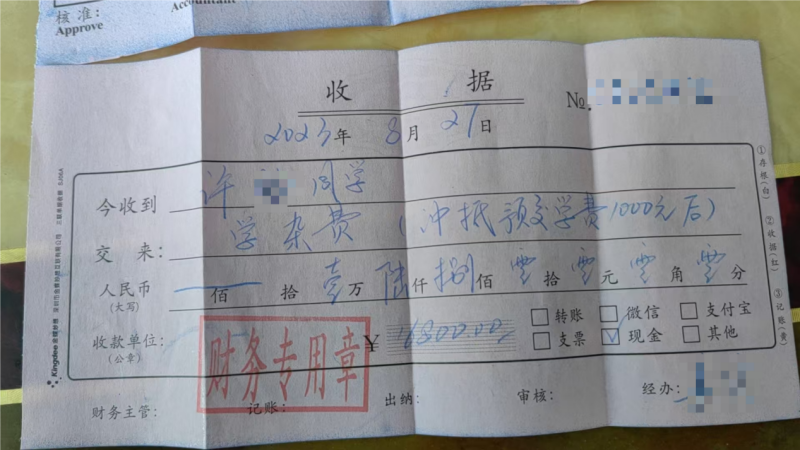 核准:
Approve
Accountant
收据
№.
2023年8月27日
今收到 许 同学
交来: 学杂费(冲抵预交学费1000元后)
人民币 佰 拾 壹万 陆仟 捌佰 零拾 零元 零角 零分
(大写)
收款单位: ¥ 16800.00 □转账 □微信 □支付宝
(公章) □支票 ☑现金 □其他
财务专用章
财务主管: 记账: 出纳: 审核: 经办:
①存根(白) ②收据(红) ③记账(黄)
Kingdee 金蝶妙想